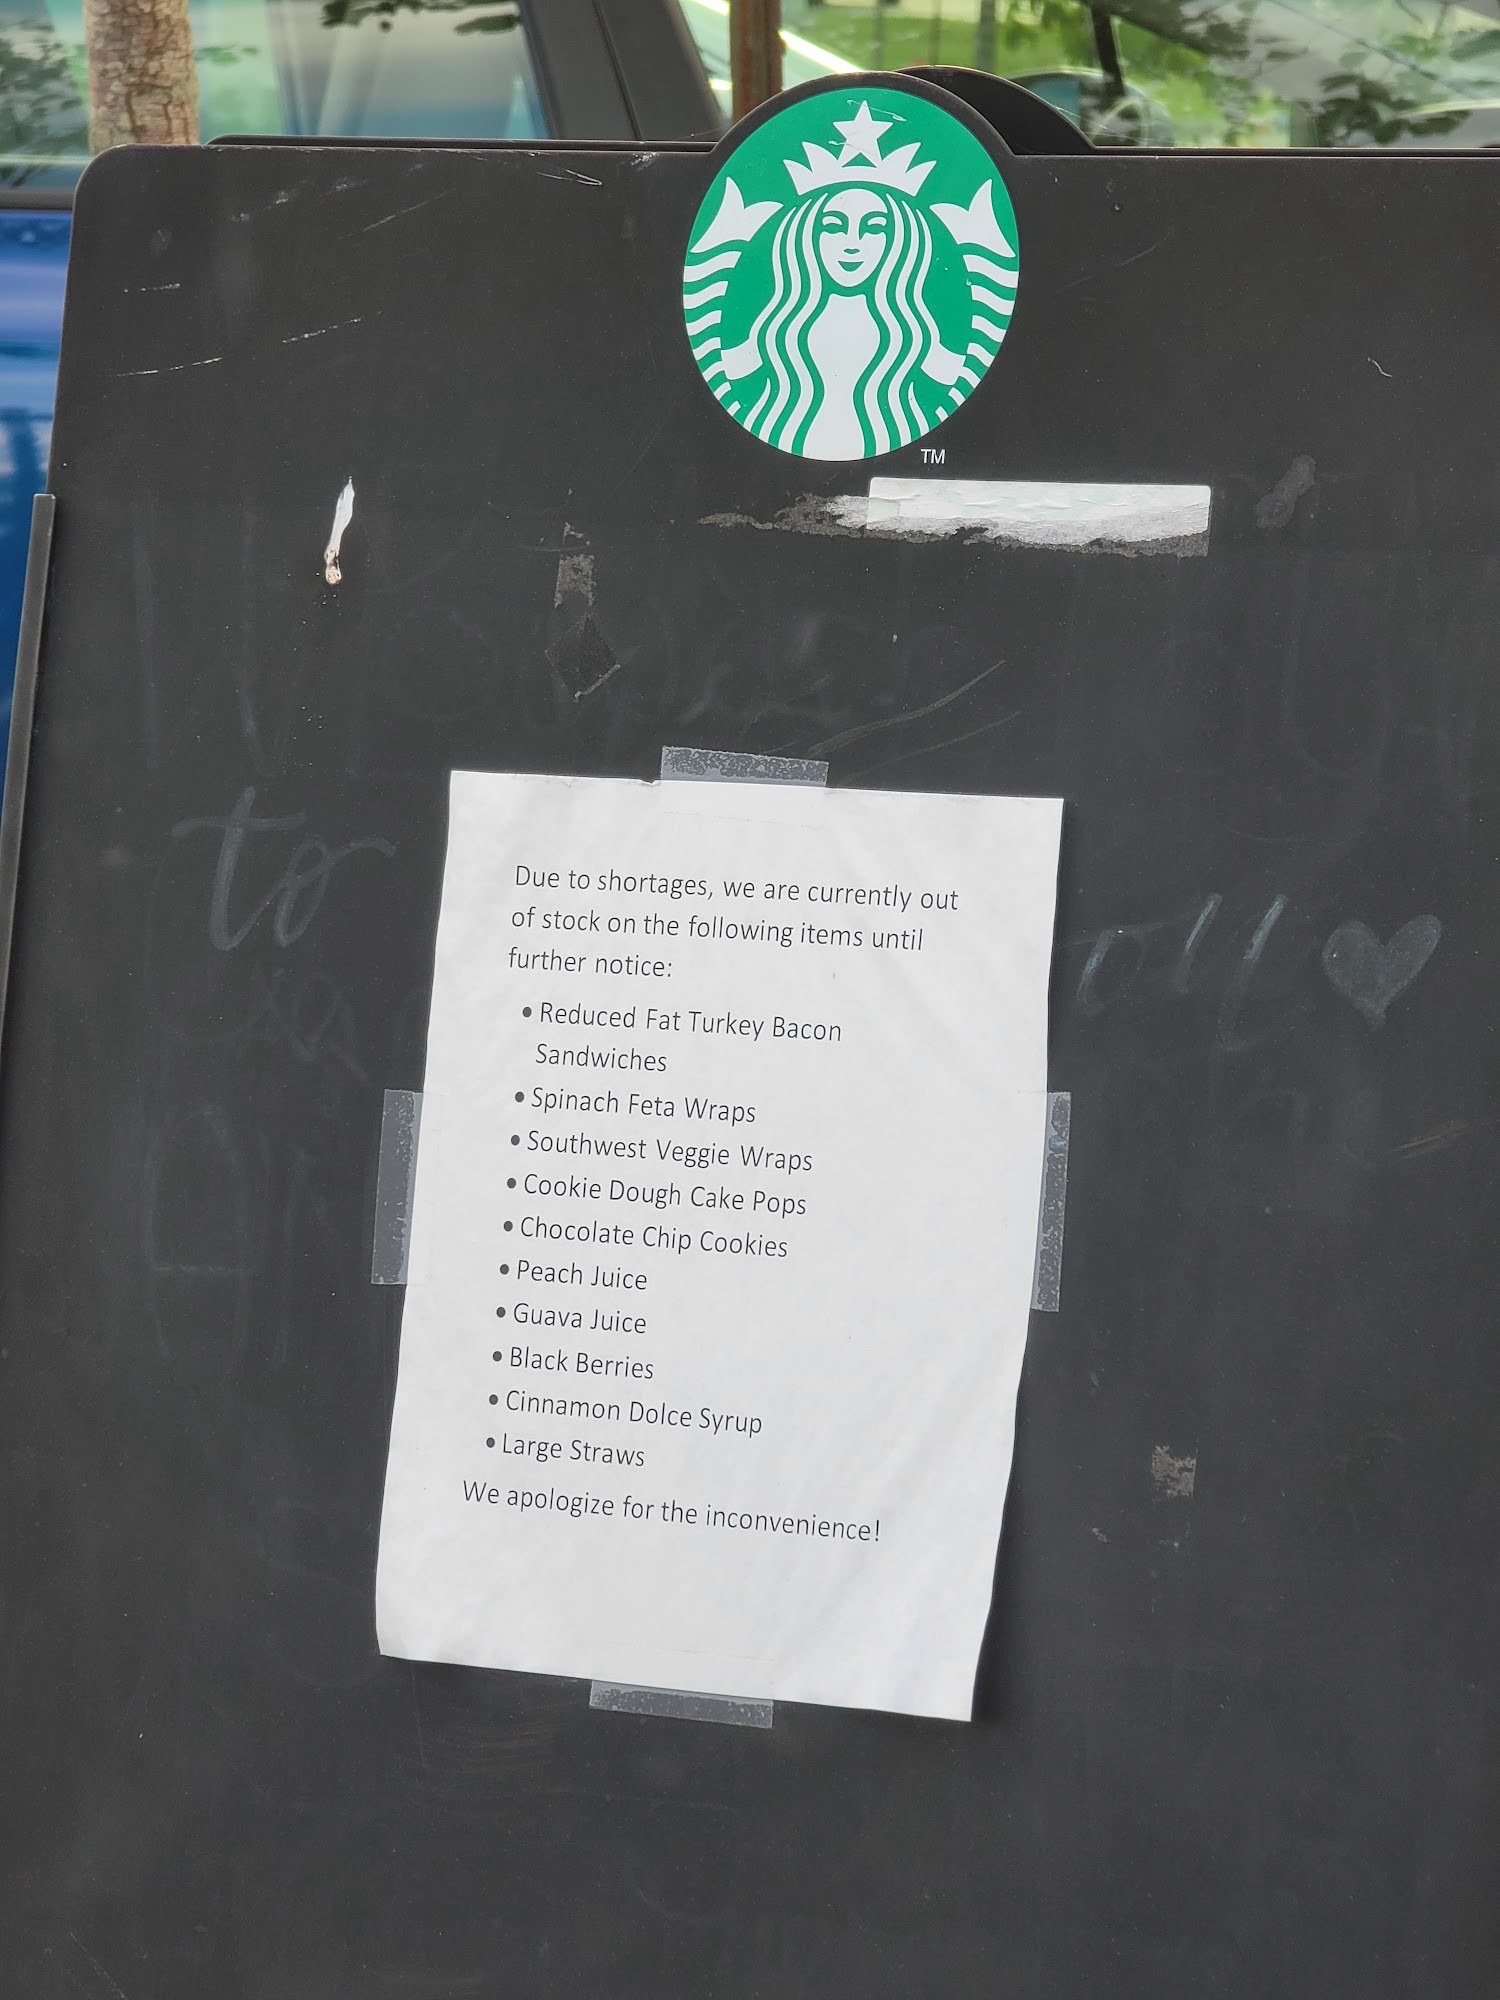 TM
to
all
Due to shortages, we are currently out
of stock on the following items until
further notice:
• Reduced Fat Turkey Bacon
Sandwiches
• Spinach Feta Wraps
• Southwest Veggie Wraps
• Cookie Dough Cake Pops
• Chocolate Chip Cookies
• Peach Juice
• Guava Juice
• Black Berries
• Cinnamon Dolce Syrup
• Large Straws
We apologize for the inconvenience!